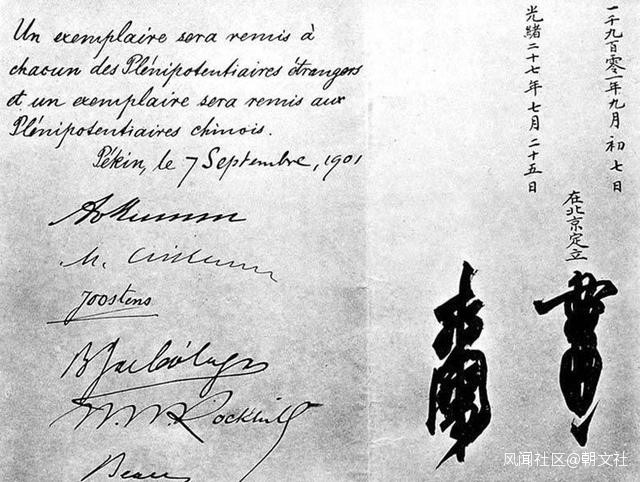 Un exemplaire sera remis à
chacun des Plénipotentiaires étrangers
et un exemplaire sera remis aux
Plénipotentiaires chinois.
Pékin, le 7 Septembre, 1901
Joostens
W. W. Rockhill
Beau
一千九百零一年九月初七日
光緒二十七年七月二十五日
在北京定立
风闻社区@朝文社